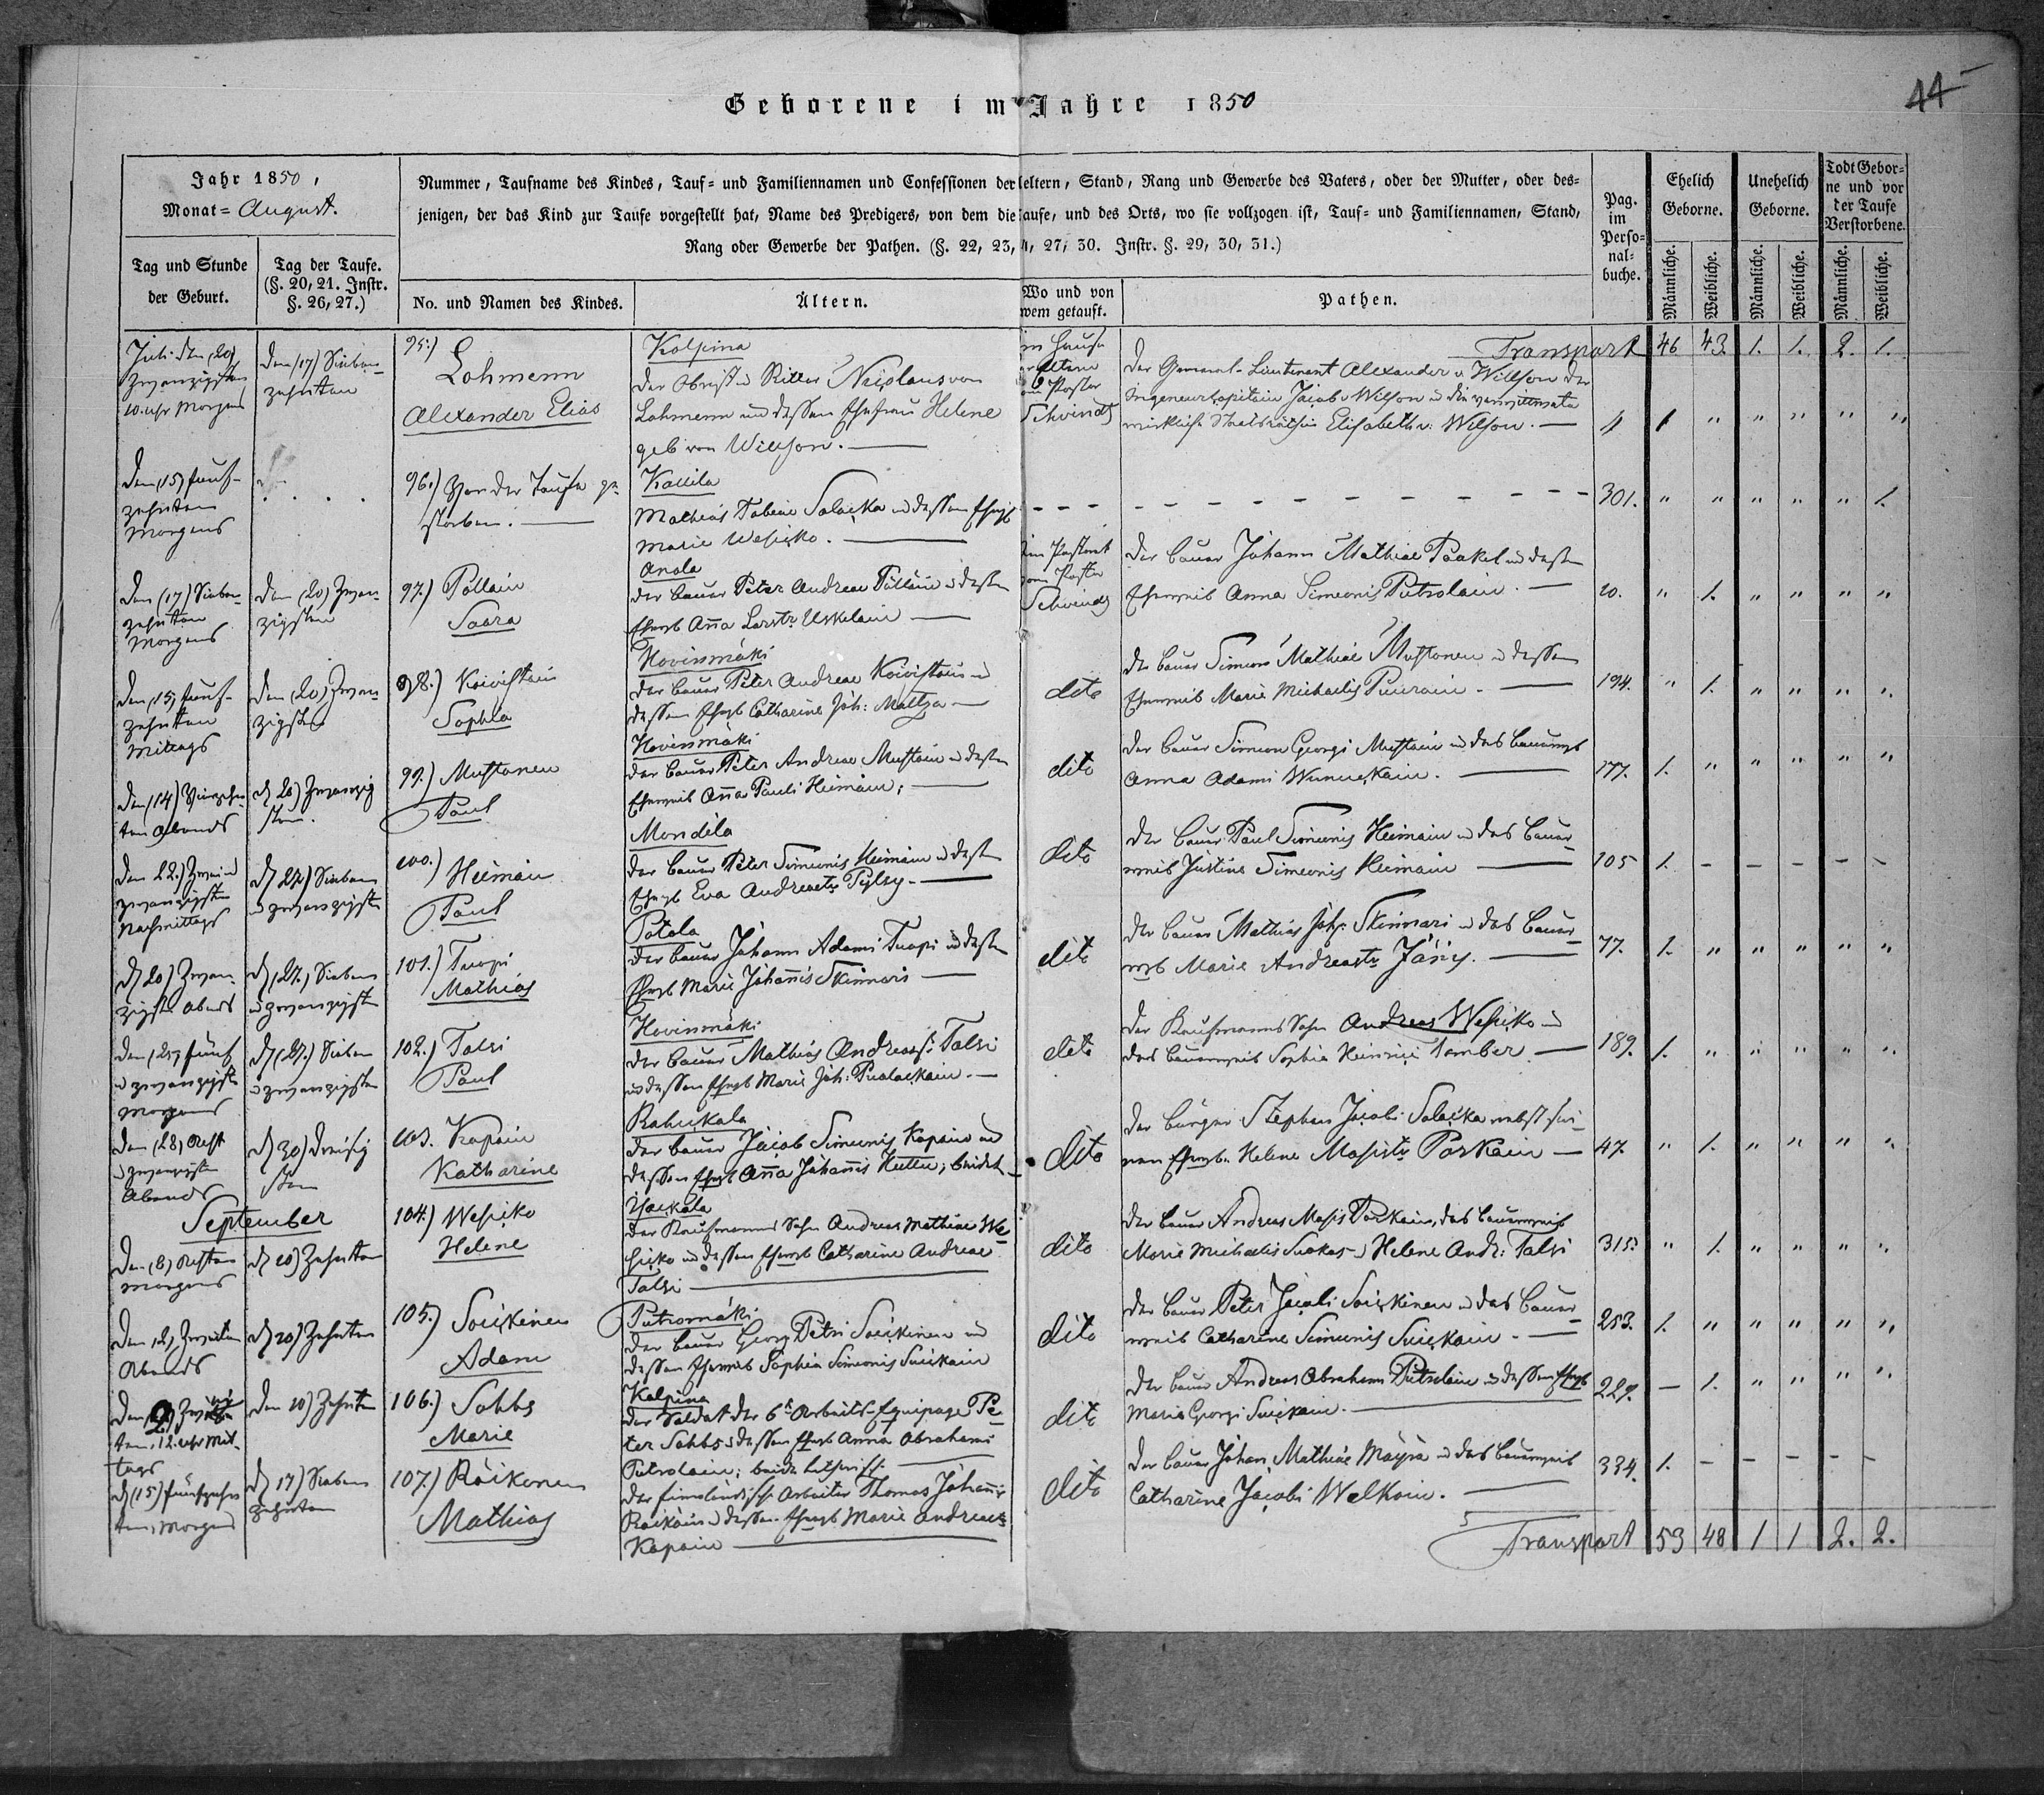 44
Geborene im Jahre 1850
Jahr 1850,
Monat= August.
Nummer, Taufname des Kindes, Tauf= und Familiennamen und Confessionen der eltern, Stand, Rang und Gewerbe des Vaters, oder der Mutter, oder des=
jenigen, der das Kind zur Taufe vorgestellt hat, Name des Predigers, von dem die aufe, und des Orts, wo sie vollzogen ist, Tauf= und Familiennamen, Stand,
Rang oder Gewerbe der Pathen. (§. 22, 23, 27, 30. Instr. §. 29, 30, 31.)
Tag und Stunde
der Geburt.
Tag der Taufe.
(§. 20, 21. Instr.
§. 26, 27.)
No. und Namen des Kindes.
Ältern.
Wo und von
wem getauft.
Pathen.
Pag.
im
Perso=
nal=
buche.
Ehelich
Geborne.
Unehelich
Geborne.
Todt Gebor=
ne und vor
der Taufe
Verstorbene.
Männliche.
Weibliche.
Männliche.
Weibliche.
Männliche.
Weibliche.
Transport 46 43 1. 1. 2. 1.
Juli den (20)
zwanzigsten
10. uhr Morgens
den (17) Sieben-
zehnten
95.)
Lohmenn
Alexander Elias
Kolpina
der Obrist u Ritter Nicolaus von
Lohmenn und dessen Ehefrau Helene
geb von Willson.
im Hause
Pastor
Schwindt
der General-Lieutenant Alexander v Willson der
Ingeneurkapitain Jacob v Wilson u die
wirkliche Staatsräthin Elisabeth v: Wilson.
1 " " " " "
den (15) fünf-
zehnten
Morgens
96.) Vor der Taufe ge
storben.
Kallila
Mathias Tobiae Solacka u dessen Ehewb
Marie Wesicko.
301. " " " " " 1.
den (17) Sieben-
zehnten
Morgens
den (20) Zwan-
zigsten
97.) Pollain
Saara
Anola
der bauer Peter Andreae Pollain u dessen
Ehewb Aña Larstr Uskelain
im Pastorat
vom Pastor
Schwindt
der bauer Johann Mathiae Paakel u dessen
Eheweib Anna Simeonis Putrolain.
20. " 1. " " " "
den (15) fünf-
zehnten
Mittags
den (20) Zwan-
zigsten
98.) Koivistain
Sophia
Hovinmäki
der bauer Peter Andreae Koivistain u
dessen Ehewb Catharine Joh: Mattza
dito
der bauer Simeon Mathiae Mustonen u dessen
Eheweib Marie Michaelis Puurain.
194. " 1. " " " "
den (14) Vierzehn-
ten Abends
d 20) Zwanzig
sten.
99.) Mustonen
Paul
Hovinmäki
der bauer Peter Andreae Mustain u dessen
Eheweib Aña Pauli Heimäin;
dito
der bauer Simeon Georgi Mustain u das bauerwb
Anna Adami Wunuckain.
177. 1. " " " " "
den 22.) Zwei u
zwanzigsten
Nachmittags
d 27) Sieben
u zwanzigsten
100.) Heimäin
Paul
Mondila
der bauer Peter Simeonis Heimäin u dessen
Ehewb Eva Andreastr Pylsy.
dito
der bauer Paul Simeonis Heimain u das bauer
weib Justina Simeonis Heimain
105 1. - - - - -
d 20) Zwan-
zigsten Abends
d (27.) Sieben
u zwanzigsten
101.) Tuopi
Mathias
Potola
der bauer Johann Adami Tuopi u dessen
Ehewb Marie Johannis Skinnari
dito
der bauer Mathias Joh: Skinnari u das bauer
wb Marie Andreastr Jäng.
77. 1. " " " " "
den (25) fünf
u zwanzigsten
Morgens
d (27.) Sieben
u zwanzigsten
102.) Talsi
Paul
Hovinmäki
der bauer Mathias Andreas: Talsi
u dessen Ehewb Marie Joh: Pualackain.
dito
der Kaufmanns Sohn Andreas Wesicko u
das bauerweib Sophia Heinrici Tember.
189. 1. " " " " "
den (28) Acht
u zwanzigsten
Abends
d 30) dreißig
sten
103. Kapain
Katharine
Rahukala
der bauer Jacob Simeonis Kapain u
dessen Ehewb Aña Johannis Huttu; beide
dito
der bürger Stephan Jacobi Solacka nebst sei-
nem Ehewb. Helene Mosistr Porkain
47. " 1. " " " "
September
den (8) Achten
Morgens
d 10) Zehnten
104.) Wesicko
Helene
der Kaufmanns Sohn Andreas Mathiae We
sicko u dessen Ehewb Catharine Andreae
Talsi
dito
der bauer Andreas Mosis Porkain, das bauerweib
Marie Michaelis Suokas u Helene Andr: Talsi
315. " 1. " " " "
den (2) Zweiten
Abends
d 10) Zehnten
105.) Soickinen
Adam
Putromäki
der bauer Georg Petri Soickinen u
dessen Eheweib Sophia Simeonis Suickain
dito
der bauer Peter Jacobi Soickinen u das bauer
weib Catharine Simeonis Suickain.
253. 1. " " " " "
ten, 12. uhr Mit-
tags
den 10) Zehnten
106.) Sohbs
Marie
Kolpina
der Soldat der 6t Arbeits-Equipage Pe
ter Sohbs u dessen Ehewb Anna Abrahami
Putrolain; beide luthrisch.
dito
der bauer Andreas Abrahami Putrolain u dessen Ehewb
Maria Georgi Suickain.
229. - 1. " " " "
d (15) fünfzehn
ten, Morgens
d 17) Sieben
zehnten
107.) Räikenen
Mathias
der finnländische Arbeiter Thomas Johannis
Raikäin u dessen Ehewb Marie Andreaetr
Kapain
dito
der bauer Johan Mathiae Mäyrä u das bauerweib
Catharine Jacobi Walkoin.
334. 1. - - - - -
Transport 53 48 1 1 2. 2.